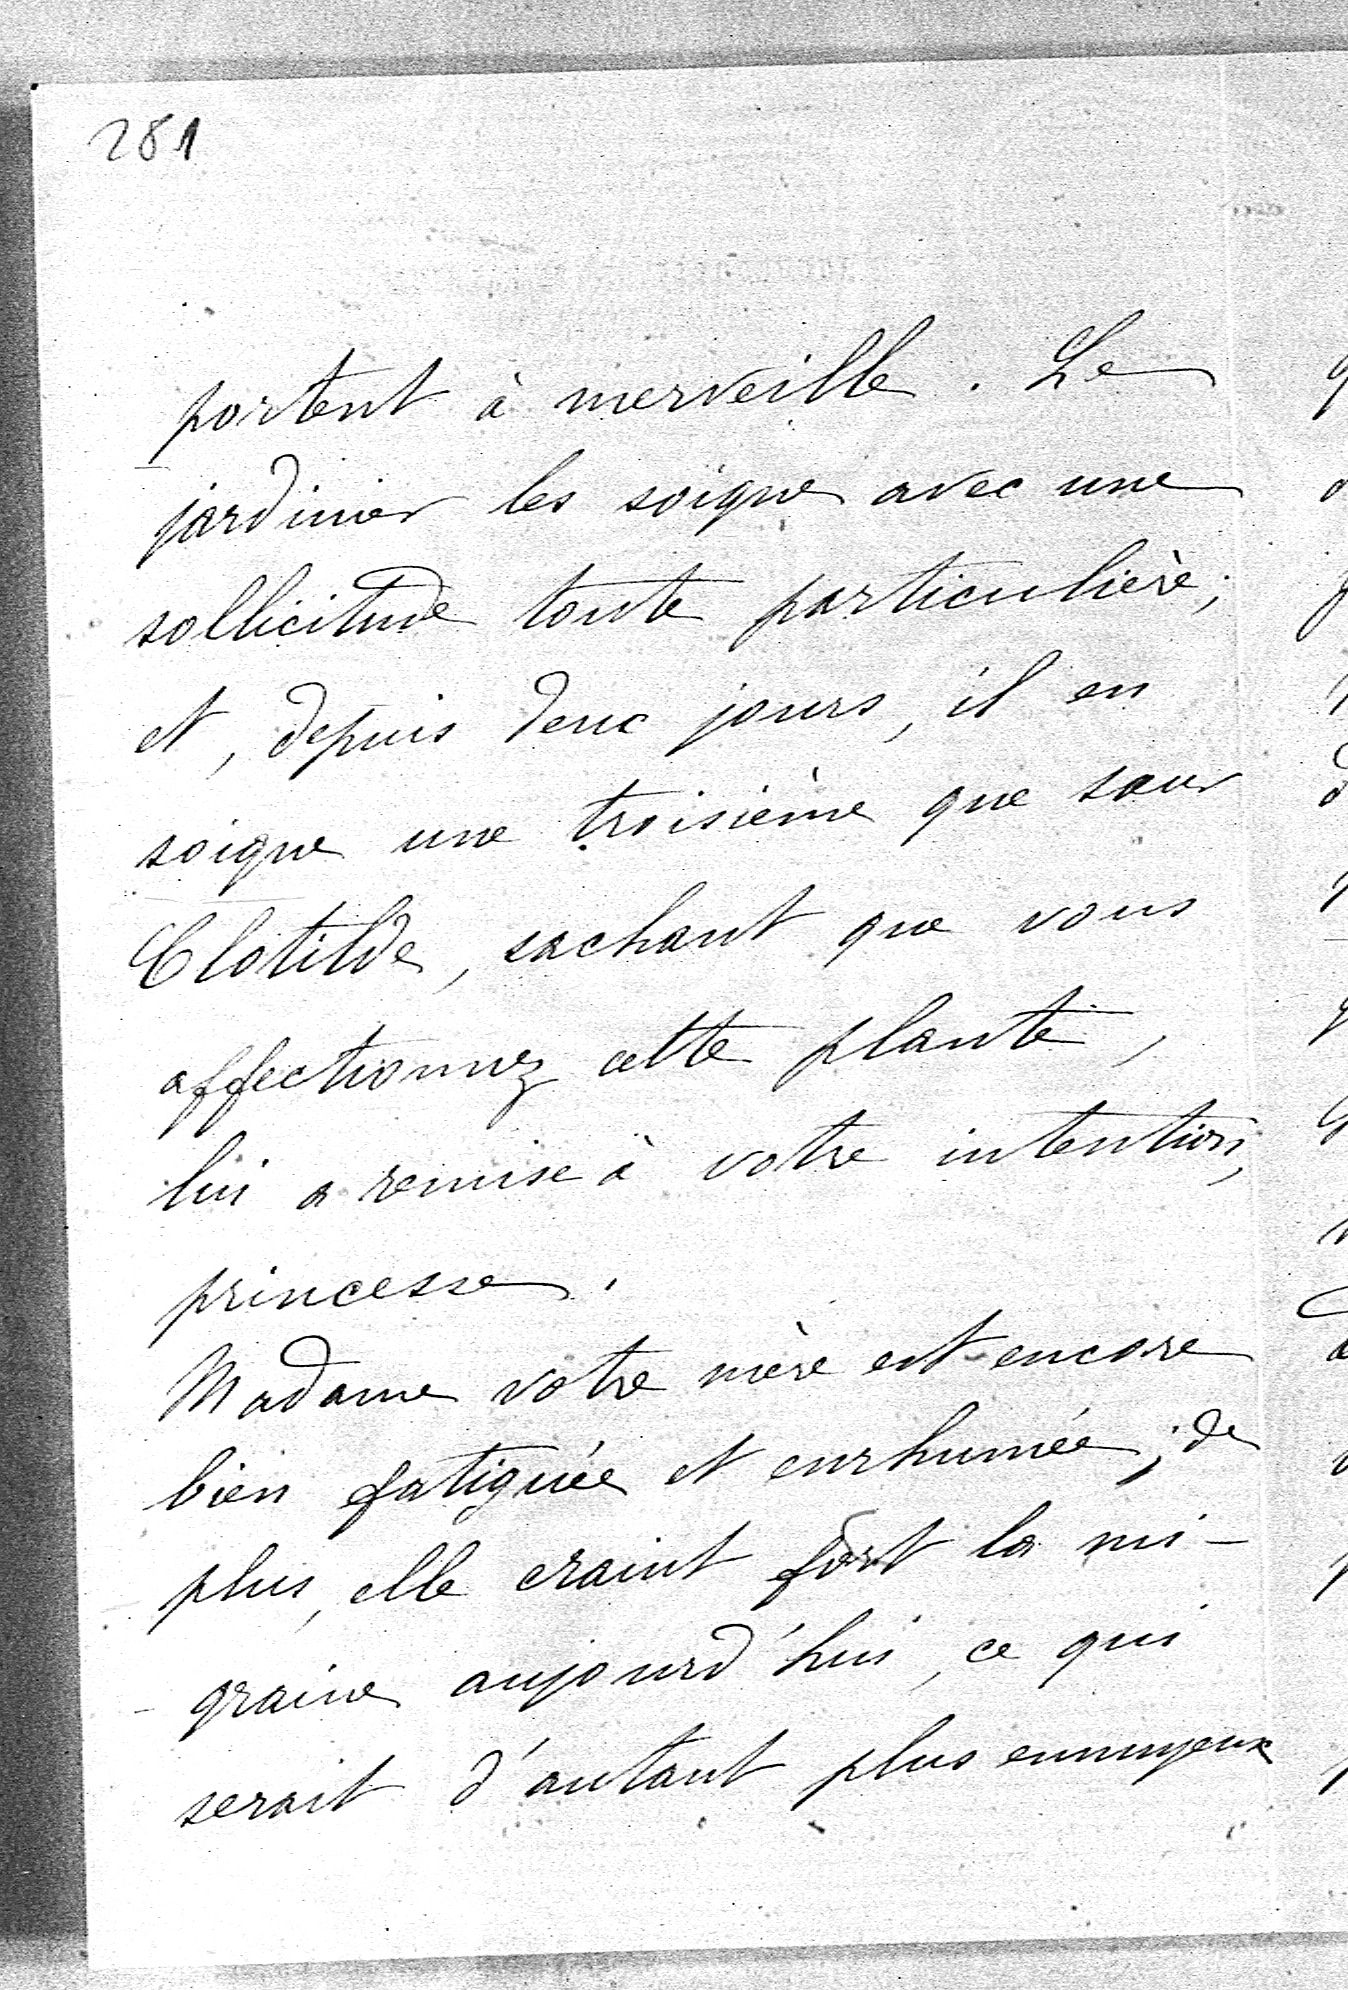 281
portent à merveille. Le
jardinier les soigne avec une
sollicitude toute particulière;
et, depuis deux jours, il en
soigne une troisième que sœur
Clotilde, sachant que vous
affectionnez cette plante,
lui a remise à votre intention,
princesse.
Madame votre mère est encore
bien fatiguée et enrhumée; de
plus, elle craint fort la mi-
graine aujourd'hui, ce qui
serait d'autant plus ennuyeux